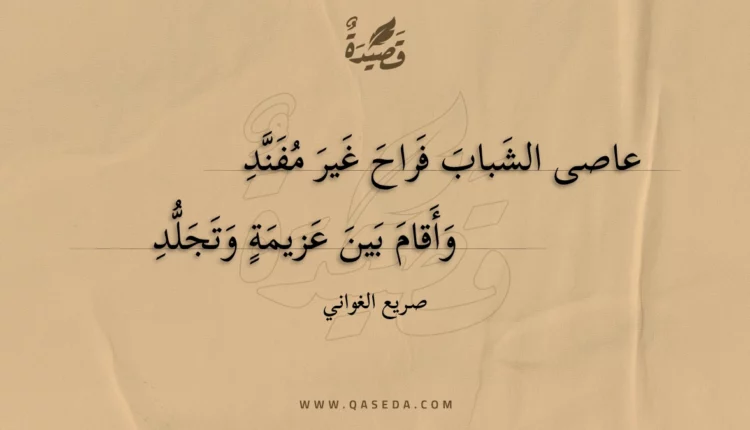 قَصِيدَةٌ
عاصى الشَبابَ فَراحَ غَيرَ مُفَنَّدِ
وَأَقامَ بَينَ عَزيمَةٍ وَتَجَلُّدِ
صريع الغواني
WWW.QASEDA.COM